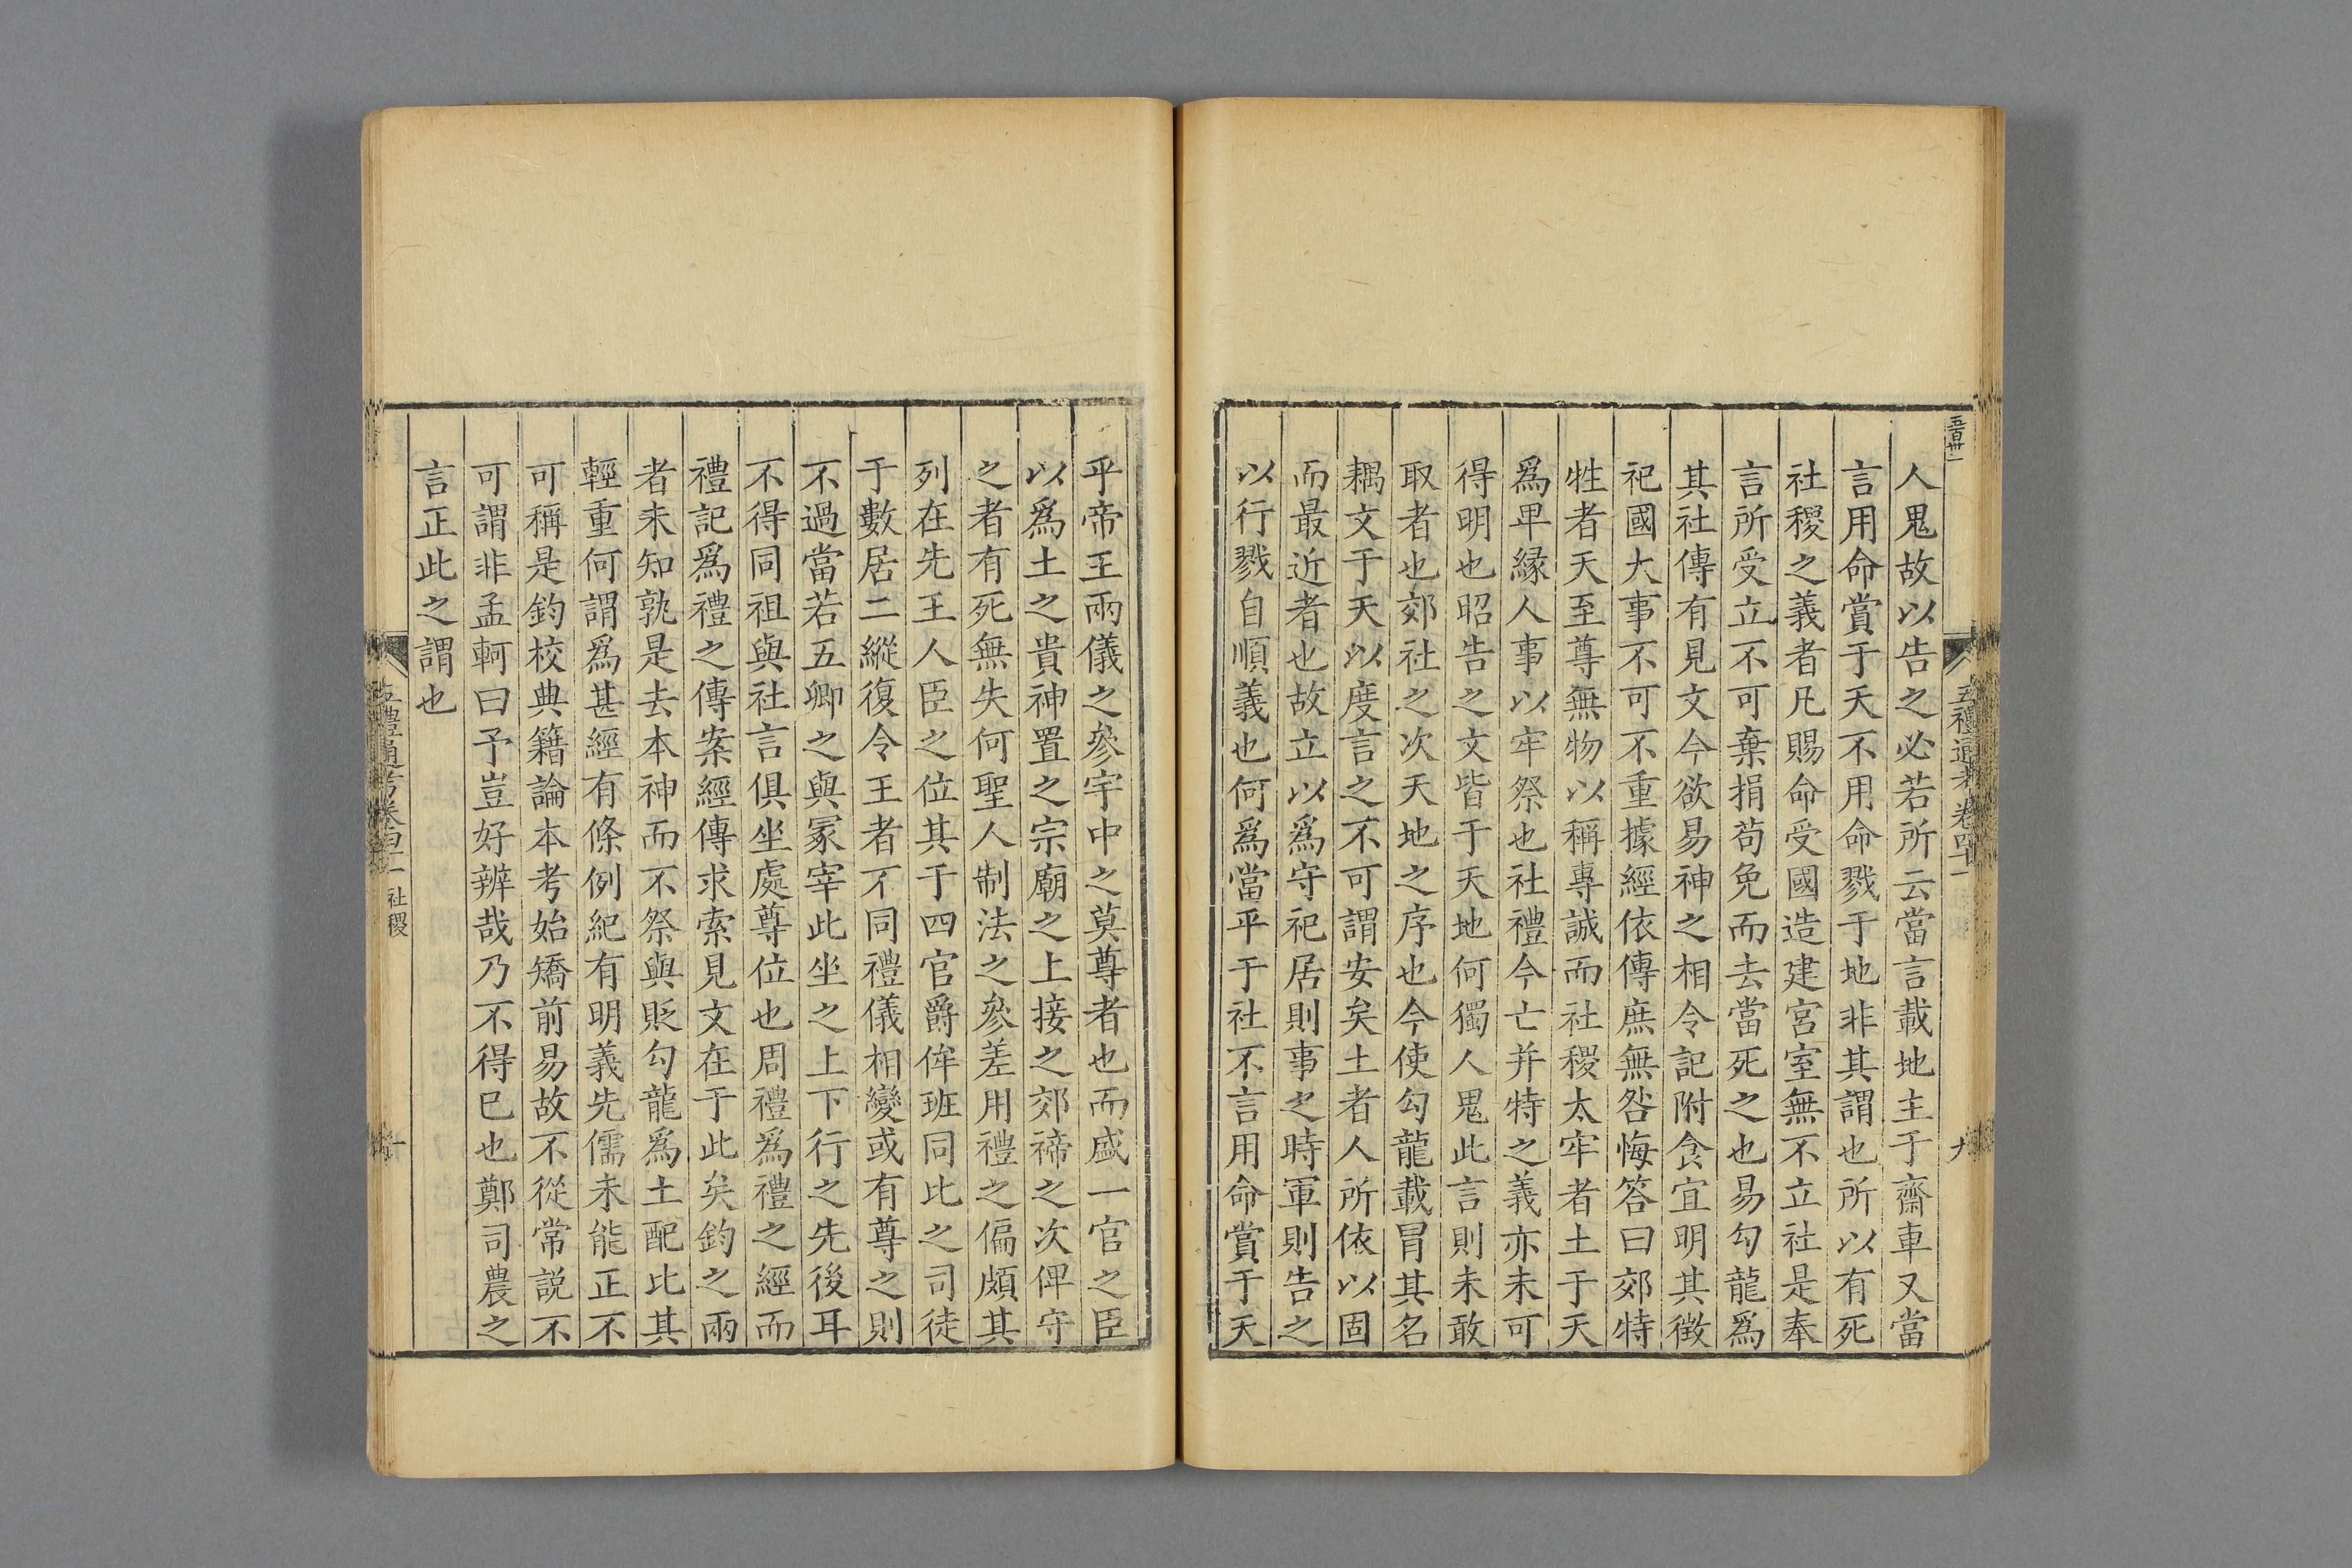 五百卅一
五禮通考卷四十一
九
人鬼故以告之必若所云當言載地主于齋車又當
言用命賞于天不用命戮于地非其謂也所以有死
社稷之義者凡賜命受國造建宮室無不立社是奉
言所受立不可棄捐苟免而去當死之也易勾龍爲
其社傳有見文今欲易神之相令記附食宜明其徴
祀國大事不可不重據經依傳庶無咎悔答曰郊特
牲者天至尊無物以稱專誠而社稷太牢者土于天
爲卑緣人事以牢祭也社禮今亡并特之義亦未可
得明也昭告之文皆于天地何獨人鬼此言則未敢
取者也郊社之次天地之序也今使勾龍載冒其名
耦文于天以度言之不可謂安矣土者人所依以固
而最近者也故立以爲守祀居則事之時軍則告之
以行戮自順義也何爲當平于社不言用命賞于天
乎帝王兩儀之參宇中之莫尊者也而盛一官之臣
以爲土之貴神置之宗廟之上接之郊禘之次俾守
之者有死無失何聖人制法之參差用禮之偏頗其
列在先王人臣之位其于四官爵侔班同比之司徒
于數居二縱復令王者不同禮儀相變或有尊之則
不過當若五卿之與冢宰此坐之上下行之先後耳
不得同祖與社言俱坐處尊位也周禮爲禮之經而
禮記爲禮之傳案經傳求索見文在于此矣鈞之兩
者未知孰是去本神而不祭與貶勾龍爲土配比其
輕重何謂爲甚經有條例紀有明義先儒未能正不
可稱是鈞校典籍論本考始矯前易故不從常說不
可謂非孟軻曰予豈好辨哉乃不得已也鄭司農之
言正此之謂也
五禮通考卷四十一
社稷
十